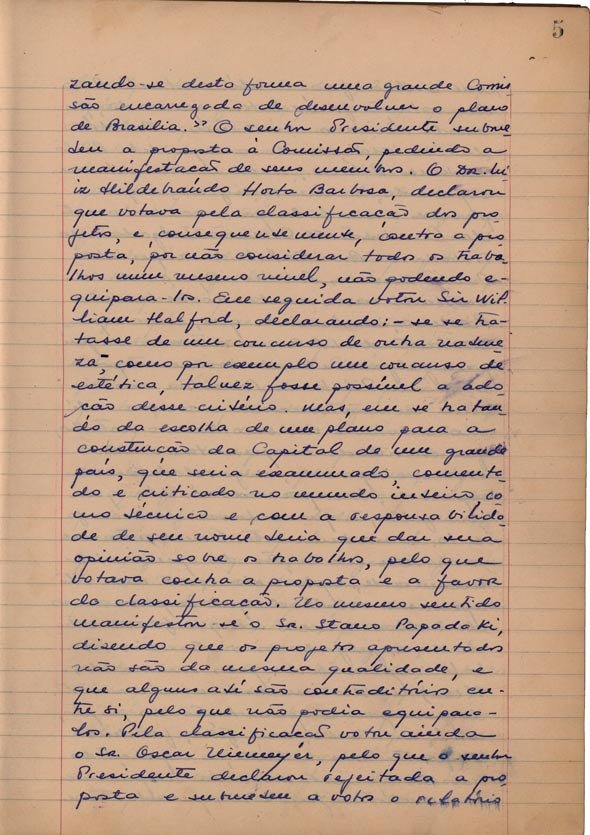 5
zando-se desta forma uma grande Comis
são encarregada de desenvolver o plano
de Brasilia." O senhor Presidente subme
teu a proposta à Comissão, pedindo a
manifestação de seus membros. O Dr. Lu
iz Hildebrando Horta Barbosa, declarou
que votava pela classificação dos pro
jetos, e consequentemente, contra a pro
posta, por não considerar todos os traba
lhos num mesmo nivel, não podendo e-
quipara-los. Em seguida votou Sir Wil
liam Halford, declarando: - se se tra-
tasse de um concurso de outra nature
za, como por exemplo um concurso de
estética, talvez fosse possível a ado
ção desse critério. Mas, em se tratan
do da escolha de um plano para a
construção da Capital de um grande
país, que seria examinado, comenta
do e criticado no mundo inteiro, co
mo técnico e com a responsabilida
de de seu nome teria que dar sua
opinião sobre os trabalhos, pelo que
votava contra a proposta e a favor
da classificação. No mesmo sentido
manifestou se o Sr. Stamo Papadaki,
dizendo que os projetos apresentados
não são da mesma qualidade, e
que alguns até são contraditórios en-
tre si, pelo que não podia equipara-
los. Pela classificação votou ainda
o Sr. Oscar Niemeyer, pelo que o senhor
Presidente declarou rejeitada a pro
posta e submeteu a votos o relatório